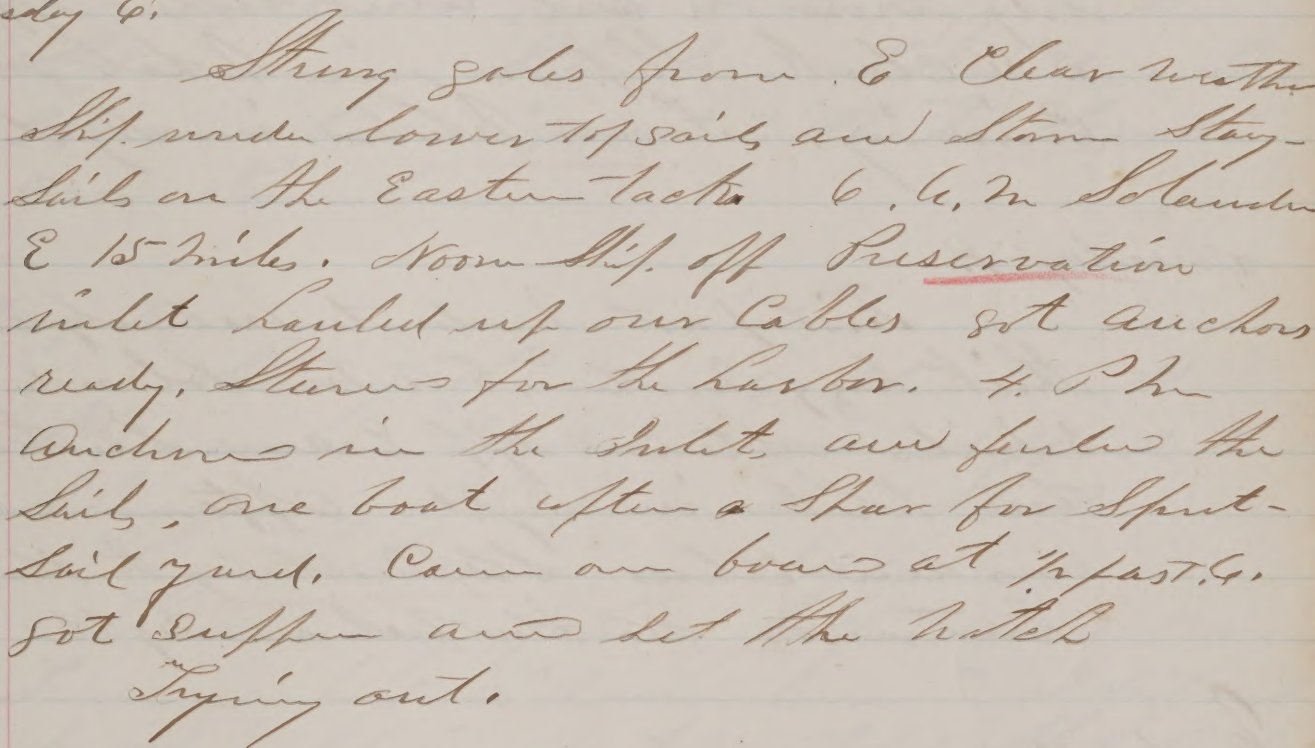 sday 6.
Strong gales from E Clear weathe
Ship under lower topsails and Storm Stay-
Sails on the Eastern tack 6. A. M Solander
E 15 miles. Noon Ship off Preservation
inlet hauled up our Cables got anchors
ready. Steered for the harbor. 4. P M
Anchored in the Inlet, and furled the
Sails, one boat after a Spar for Sprit-
Sail yard. Came on board at ½ past. 6.
got supper and set the watch
Trying out.